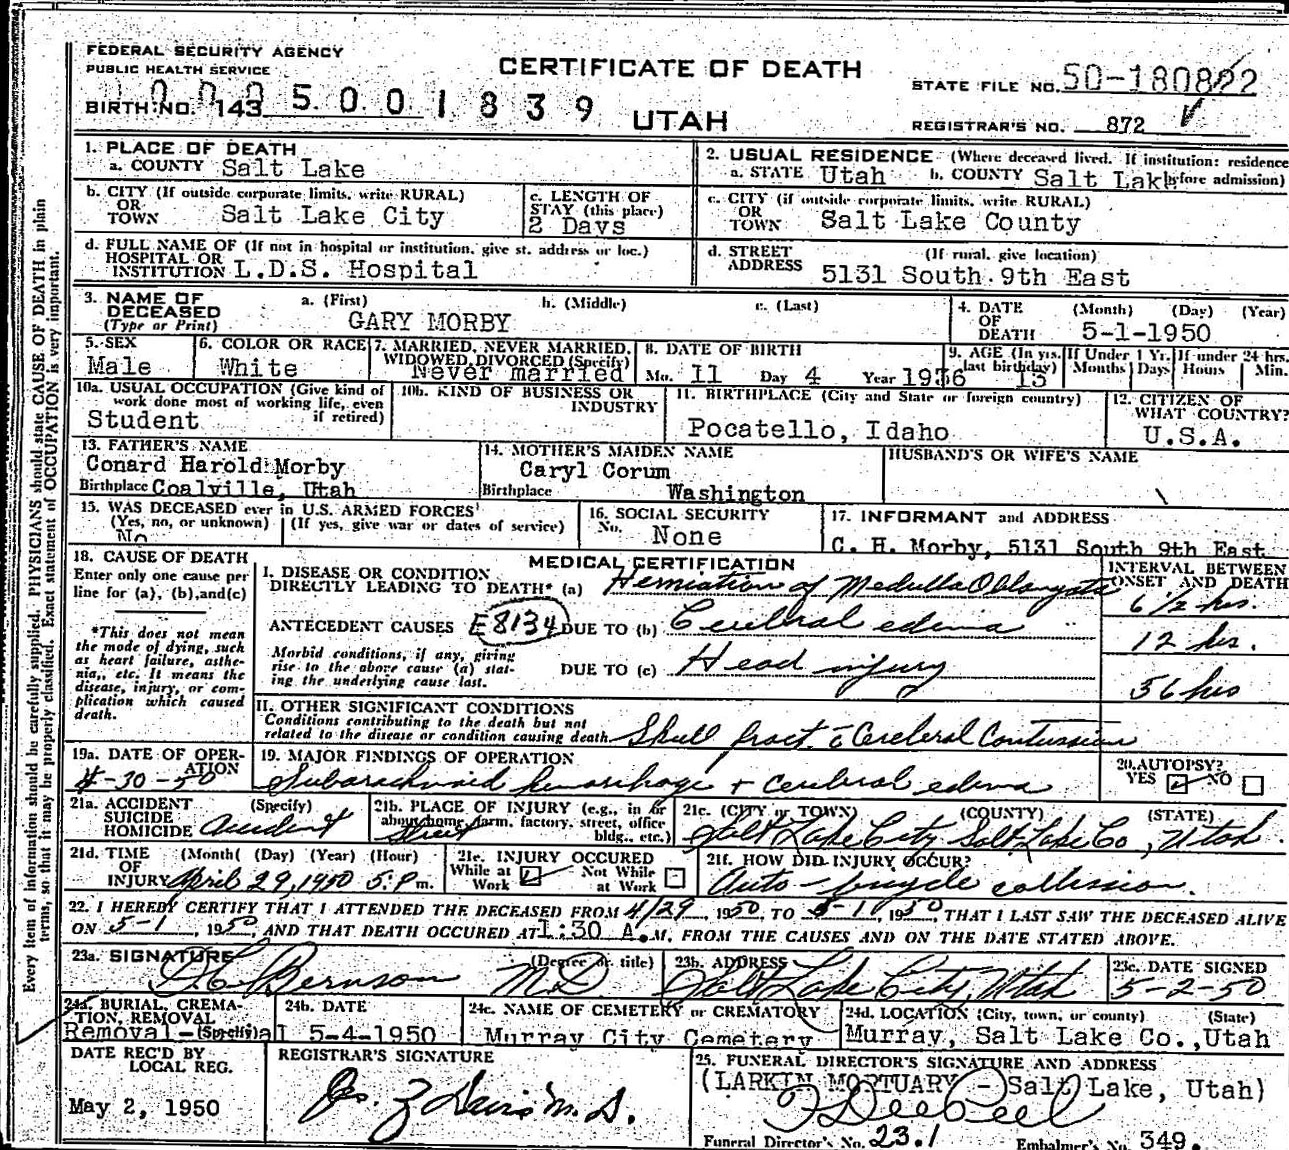 FEDERAL SECURITY AGENCY
PUBLIC HEALTH SERVICE
CERTIFICATE OF DEATH
STATE FILE NO. 50-180822
BIRTH NO. 143 5 0 0 1 8 3 9
UTAH
REGISTRAR'S NO. 872
1. PLACE OF DEATH
a. COUNTY Salt Lake
2. USUAL RESIDENCE (Where deceased lived. If institution: residence before admission)
a. STATE Utah b. COUNTY Salt Lake
b. CITY (If outside corporate limits, write RURAL)
OR
TOWN Salt Lake City
c. LENGTH OF
STAY (this place)
2 Days
c. CITY (if outside corporate limits, write RURAL)
OR
TOWN Salt Lake County
d. FULL NAME OF (If not in hospital or institution, give st. address or loc.)
HOSPITAL OR
INSTITUTION L.D.S. Hospital
d. STREET (If rural, give location)
ADDRESS 5131 South 9th East
3. NAME OF
DECEASED
(Type or Print)
a. (First) b. (Middle) c. (Last)
GARY MORBY
4. DATE (Month) (Day) (Year)
OF
DEATH 5-1-1950
5. SEX
Male
6. COLOR OR RACE
White
7. MARRIED, NEVER MARRIED,
WIDOWED, DIVORCED (Specify)
Never married
8. DATE OF BIRTH
Mo. 11 Day 4 Year 1936
9. AGE (In yrs.
last birthday) 13
If Under 1 Yr.
Months Days
If under 24 hrs.
Hours Min.
10a. USUAL OCCUPATION (Give kind of
work done most of working life, even
if retired)
Student
10b. KIND OF BUSINESS OR
INDUSTRY
11. BIRTHPLACE (City and State or foreign country)
Pocatello, Idaho
12. CITIZEN OF
WHAT COUNTRY?
U.S.A.
13. FATHER'S NAME
Conard Harold Morby
Birthplace Coalville, Utah
14. MOTHER'S MAIDEN NAME
Caryl Corum
Birthplace Washington
HUSBAND'S OR WIFE'S NAME
15. WAS DECEASED ever in U.S. ARMED FORCES?
(Yes, no, or unknown) (If yes, give war or dates of service)
No
16. SOCIAL SECURITY
No. None
17. INFORMANT and ADDRESS
C. H. Morby, 5131 South 9th East
18. CAUSE OF DEATH
Enter only one cause per
line for (a), (b), and (c)
*This does not mean
the mode of dying, such
as heart failure, asthe-
nia, etc. It means the
disease, injury, or com-
plication which caused
death.
MEDICAL CERTIFICATION
INTERVAL BETWEEN
ONSET AND DEATH
I. DISEASE OR CONDITION
DIRECTLY LEADING TO DEATH* (a) Herniation of Medulla Oblongata
6 1/2 hrs.
ANTECEDENT CAUSES E8134 DUE TO (b) Cerebral edema
12 hrs.
Morbid conditions, if any, giving
rise to the above cause (a) stat-
ing the underlying cause last.
DUE TO (c) Head injury
56 hrs
II. OTHER SIGNIFICANT CONDITIONS
Conditions contributing to the death but not
related to the disease or condition causing death Skull fract. c̄ Cerebral Contussion
19a. DATE OF OPER-
ATION
4-30-50
19. MAJOR FINDINGS OF OPERATION
Subarachnoid hemorrhage + cerebral edema
20. AUTOPSY?
YES NO
21a. ACCIDENT (Specify)
SUICIDE
HOMICIDE Accident
21b. PLACE OF INJURY (e.g., in or
about home, farm, factory, street, office
bldg., etc.)
Street
21c. (CITY or TOWN) (COUNTY) (STATE)
Salt Lake City Salt Lake Co, Utah.
21d. TIME (Month) (Day) (Year) (Hour)
OF
INJURY April 29, 1950 5 P m.
21e. INJURY OCCURED
While at Not While
Work at Work
21f. HOW DID INJURY OCCUR?
Auto - bicycle collission.
22. I HEREBY CERTIFY THAT I ATTENDED THE DECEASED FROM 4/29, 1950, TO 5-1, 1950, THAT I LAST SAW THE DECEASED ALIVE
ON 5-1, 1950, AND THAT DEATH OCCURED AT 1:30 A.M. FROM THE CAUSES AND ON THE DATE STATED ABOVE.
23a. SIGNATURE (Degree or title)
D C Bernson MD
23b. ADDRESS
Salt Lake City, Utah
23c. DATE SIGNED
5-2-50
24a. BURIAL, CREMA-
TION, REMOVAL
(Specify)
24b. DATE
5-4-1950
24c. NAME OF CEMETERY or CREMATORY
Murray City Cemetery
24d. LOCATION (City, town, or county) (State)
Murray, Salt Lake Co., Utah
DATE REC'D BY
LOCAL REG.
May 2, 1950
REGISTRAR'S SIGNATURE
25. FUNERAL DIRECTOR'S SIGNATURE AND ADDRESS
(LARKIN MORTUARY - Salt Lake, Utah)
Funeral Director's No. 231
Embalmer's No. 349.
Every item of information should be carefully supplied. PHYSICIANS should state CAUSE OF DEATH in plain
terms, so that it may be properly classified. Exact statement of OCCUPATION is very important.